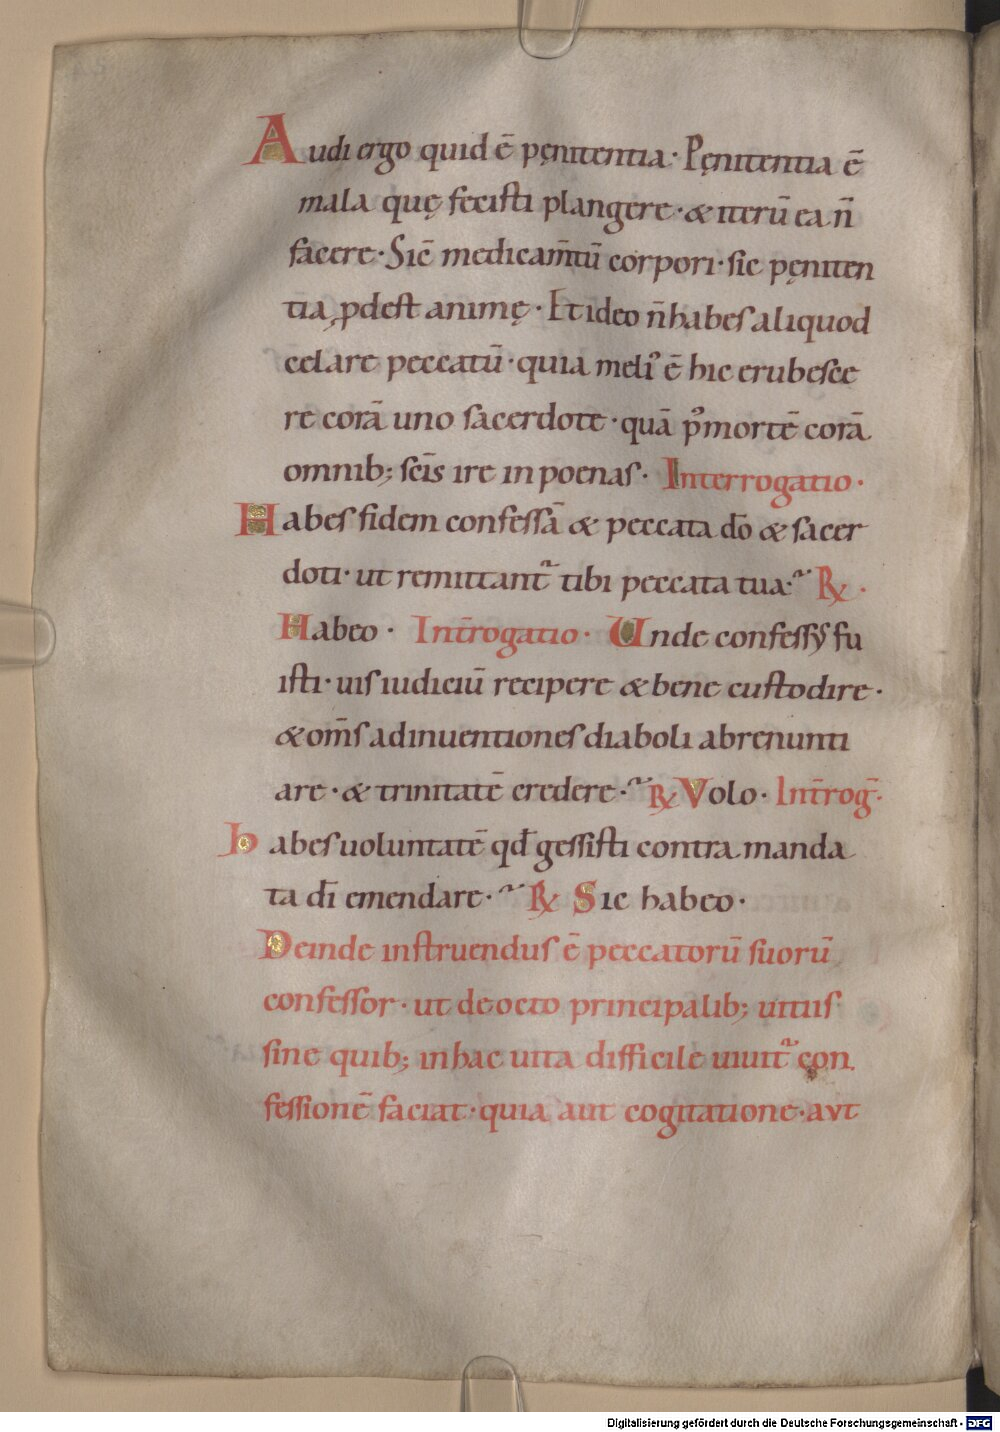 Audi ergo quid ē pęnitentia· Pęnitentia ē
mala quę fecisti plangere· & iterū ea n̄
facere· Sic̄ medicam̄tū corpori· sic pęniten
tia ꝓdest animę· Et ideo n̄ habes aliquod
celare peccatū· quia meliꝰ ē hic erubesce
re corā uno sacerdote· quā pꝰ mortē corā
omnib; sc̄is ire in poenas· Interrogatio·
Habes fidem confessā & peccata dō & sacer
doti· ut remittant᷑ tibi peccata tua· R̸·
Habeo· Int̄rogatio· Unde confessꝰ fu
isti· uis iudiciū recipere & bene custodire·
& om̄s adinuentiones diaboli abrenunti
are· & trinitatē credere· R̸ Volo· Int̄rog̅·
habes uoluntatē qđ gessisti contra manda
ta dī emendare· R̸ Sic habeo·
Deinde instruendus ē peccatorū suorū
confessor· ut de octo principalib; uitiis
sine quib; in hac uita difficile uiuit᷑ con
fessionē faciat· quia aut cogitatione· aut
Digitalisierung gefördert durch die Deutsche Forschungsgemeinschaft - DFG